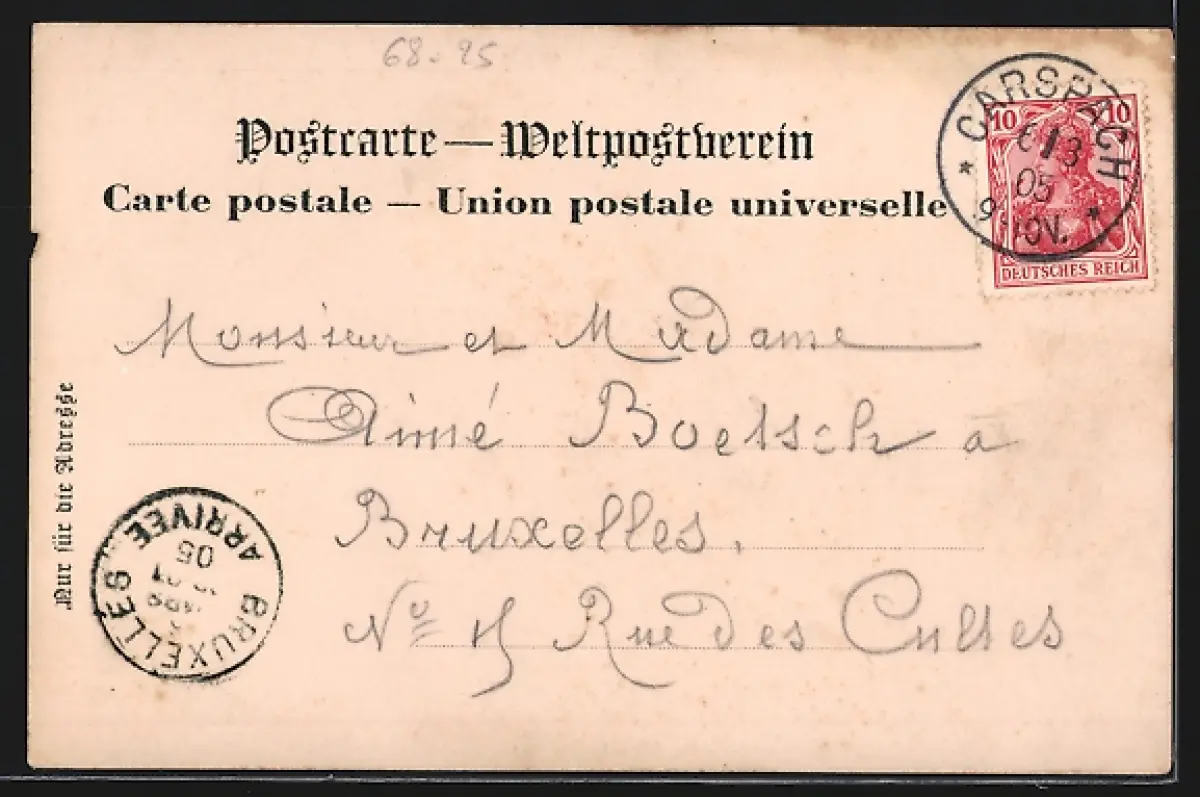 68-25
Postcarte — Weltpostverein
Carte postale — Union postale universelle
CARSPACH
10 10
/3
05
9 NOV.
DEUTSCHES REICH
Monsieur et Madame
Aimé Boetsch à
Bruxelles.
Nº Rue des Cultes
Nur für die Adresse
BRUXELLES
ARRIVEE
05